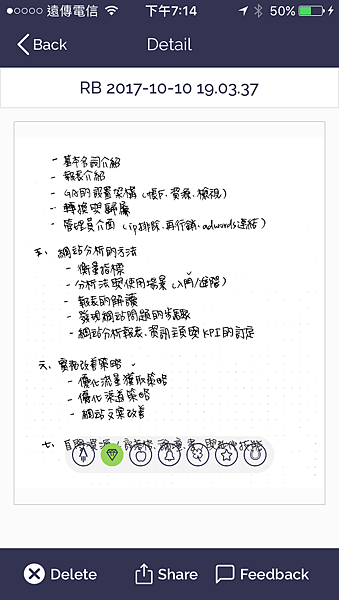 遠傳電信 下午7:14 50%
Back Detail
RB 2017-10-10 19.03.37
- 基本名詞介紹
- 報表介紹
- GA的設置架構(帳戶、資源、檢視)
- 轉換與歸屬
- 管理員介面(ip排除、再行銷、adwords連結)
五、網站分析的方法
- 衡量指標
- 分析法與使用場景(入門/進階)
- 報表的解讀
- 發現網站問題的步驟
- 網站分析報表、資訊主頁與KPI的訂定
六、實務改善策略
- 優化流量獲取策略
- 優化渠道策略
- 網站文案改善
七、自學資源
Delete Share Feedback